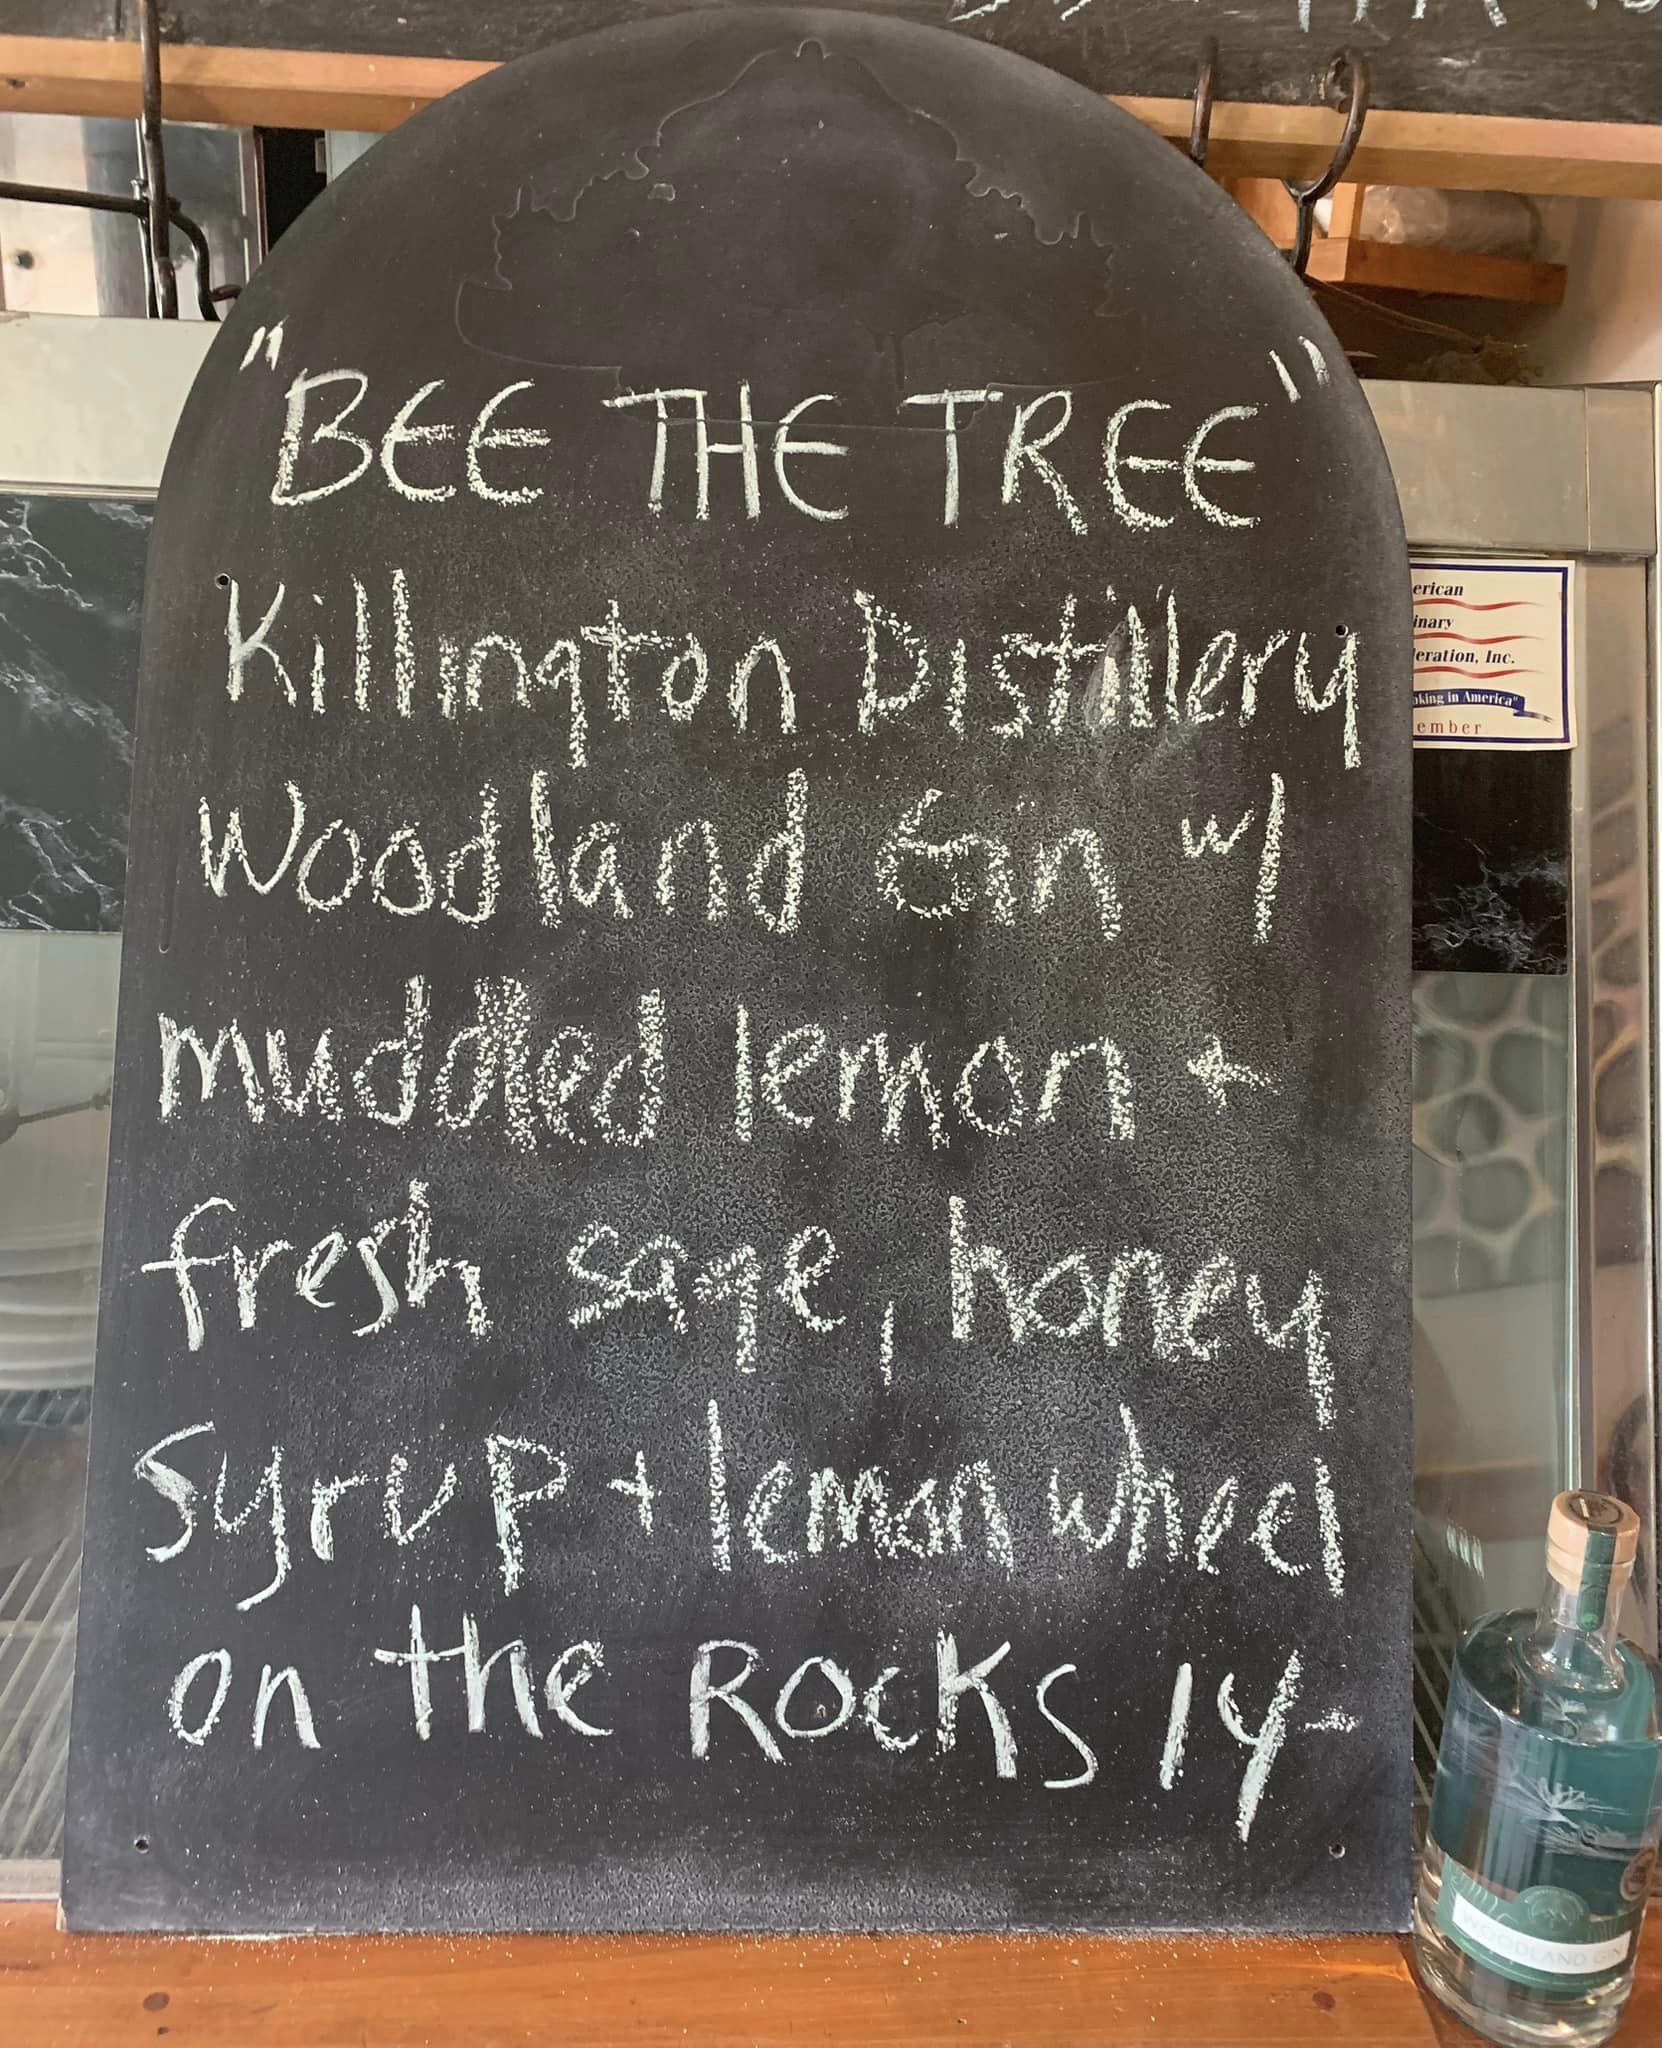 "BEE THE TREE"
Killington Distillery
Woodland Gin w/
muddled lemon +
fresh sage, honey
syrup + lemon wheel
on the ROCKS 14-
erican
inary
eration, Inc.
oking in America"
ember
WOODLAND GIN